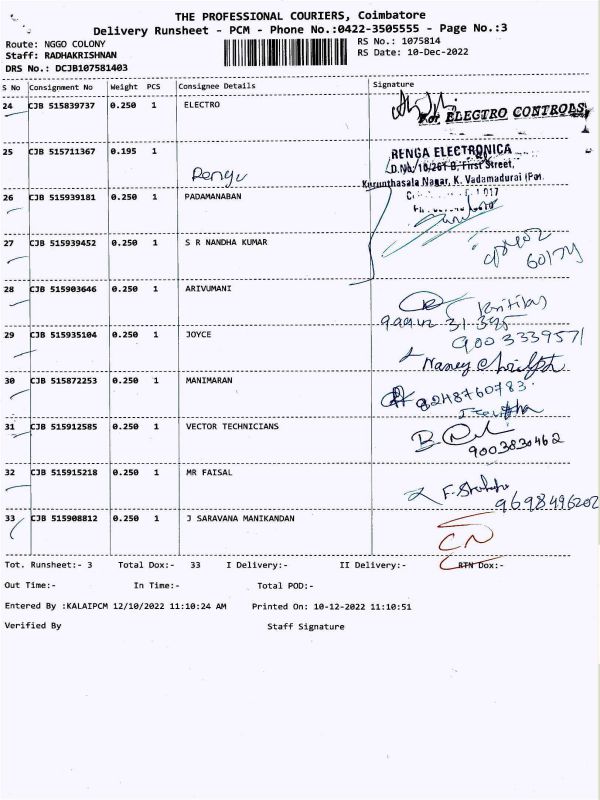 THE PROFESSIONAL COURIERS, Coimbatore
Delivery Runsheet - PCM - Phone No.:0422-3505555 - Page No.:3
Route: NGGO COLONY
RS No.: 1075814
Staff: RADHAKRISHNAN
RS Date: 10-Dec-2022
DRS No.: DCJB107581403
S No Consignment No Weight PCS Consignee Details Signature
24 CJB 515839737 0.250 1 ELECTRO
For ELECTRO CONTROLS,
25 CJB 515711367 0.195 1
Rengu
RENGA ELECTRONICA
D.No: 10/261 B, First Street,
Kurunthasala Nagar, K. Vadamadurai (Po).
26 CJB 515939181 0.250 1 PADAMANABAN
27 CJB 515939452 0.250 1 S R NANDHA KUMAR
60174
28 CJB 515903646 0.250 1 ARIVUMANI
99942 31 395
29 CJB 515935104 0.250 1 JOYCE
9003339571
Nancy
30 CJB 515872253 0.250 1 MANIMARAN
8248760783
31 CJB 515912585 0.250 1 VECTOR TECHNICIANS
9003830462
32 CJB 515915218 0.250 1 MR FAISAL
9698496202
33 CJB 515908812 0.250 1 J SARAVANA MANIKANDAN
CN
Tot. Runsheet:- 3 Total Dox:- 33 I Delivery:- II Delivery:- RTN Dox:-
Out Time:- In Time:- Total POD:-
Entered By :KALAIPCM 12/10/2022 11:10:24 AM Printed On: 10-12-2022 11:10:51
Verified By Staff Signature